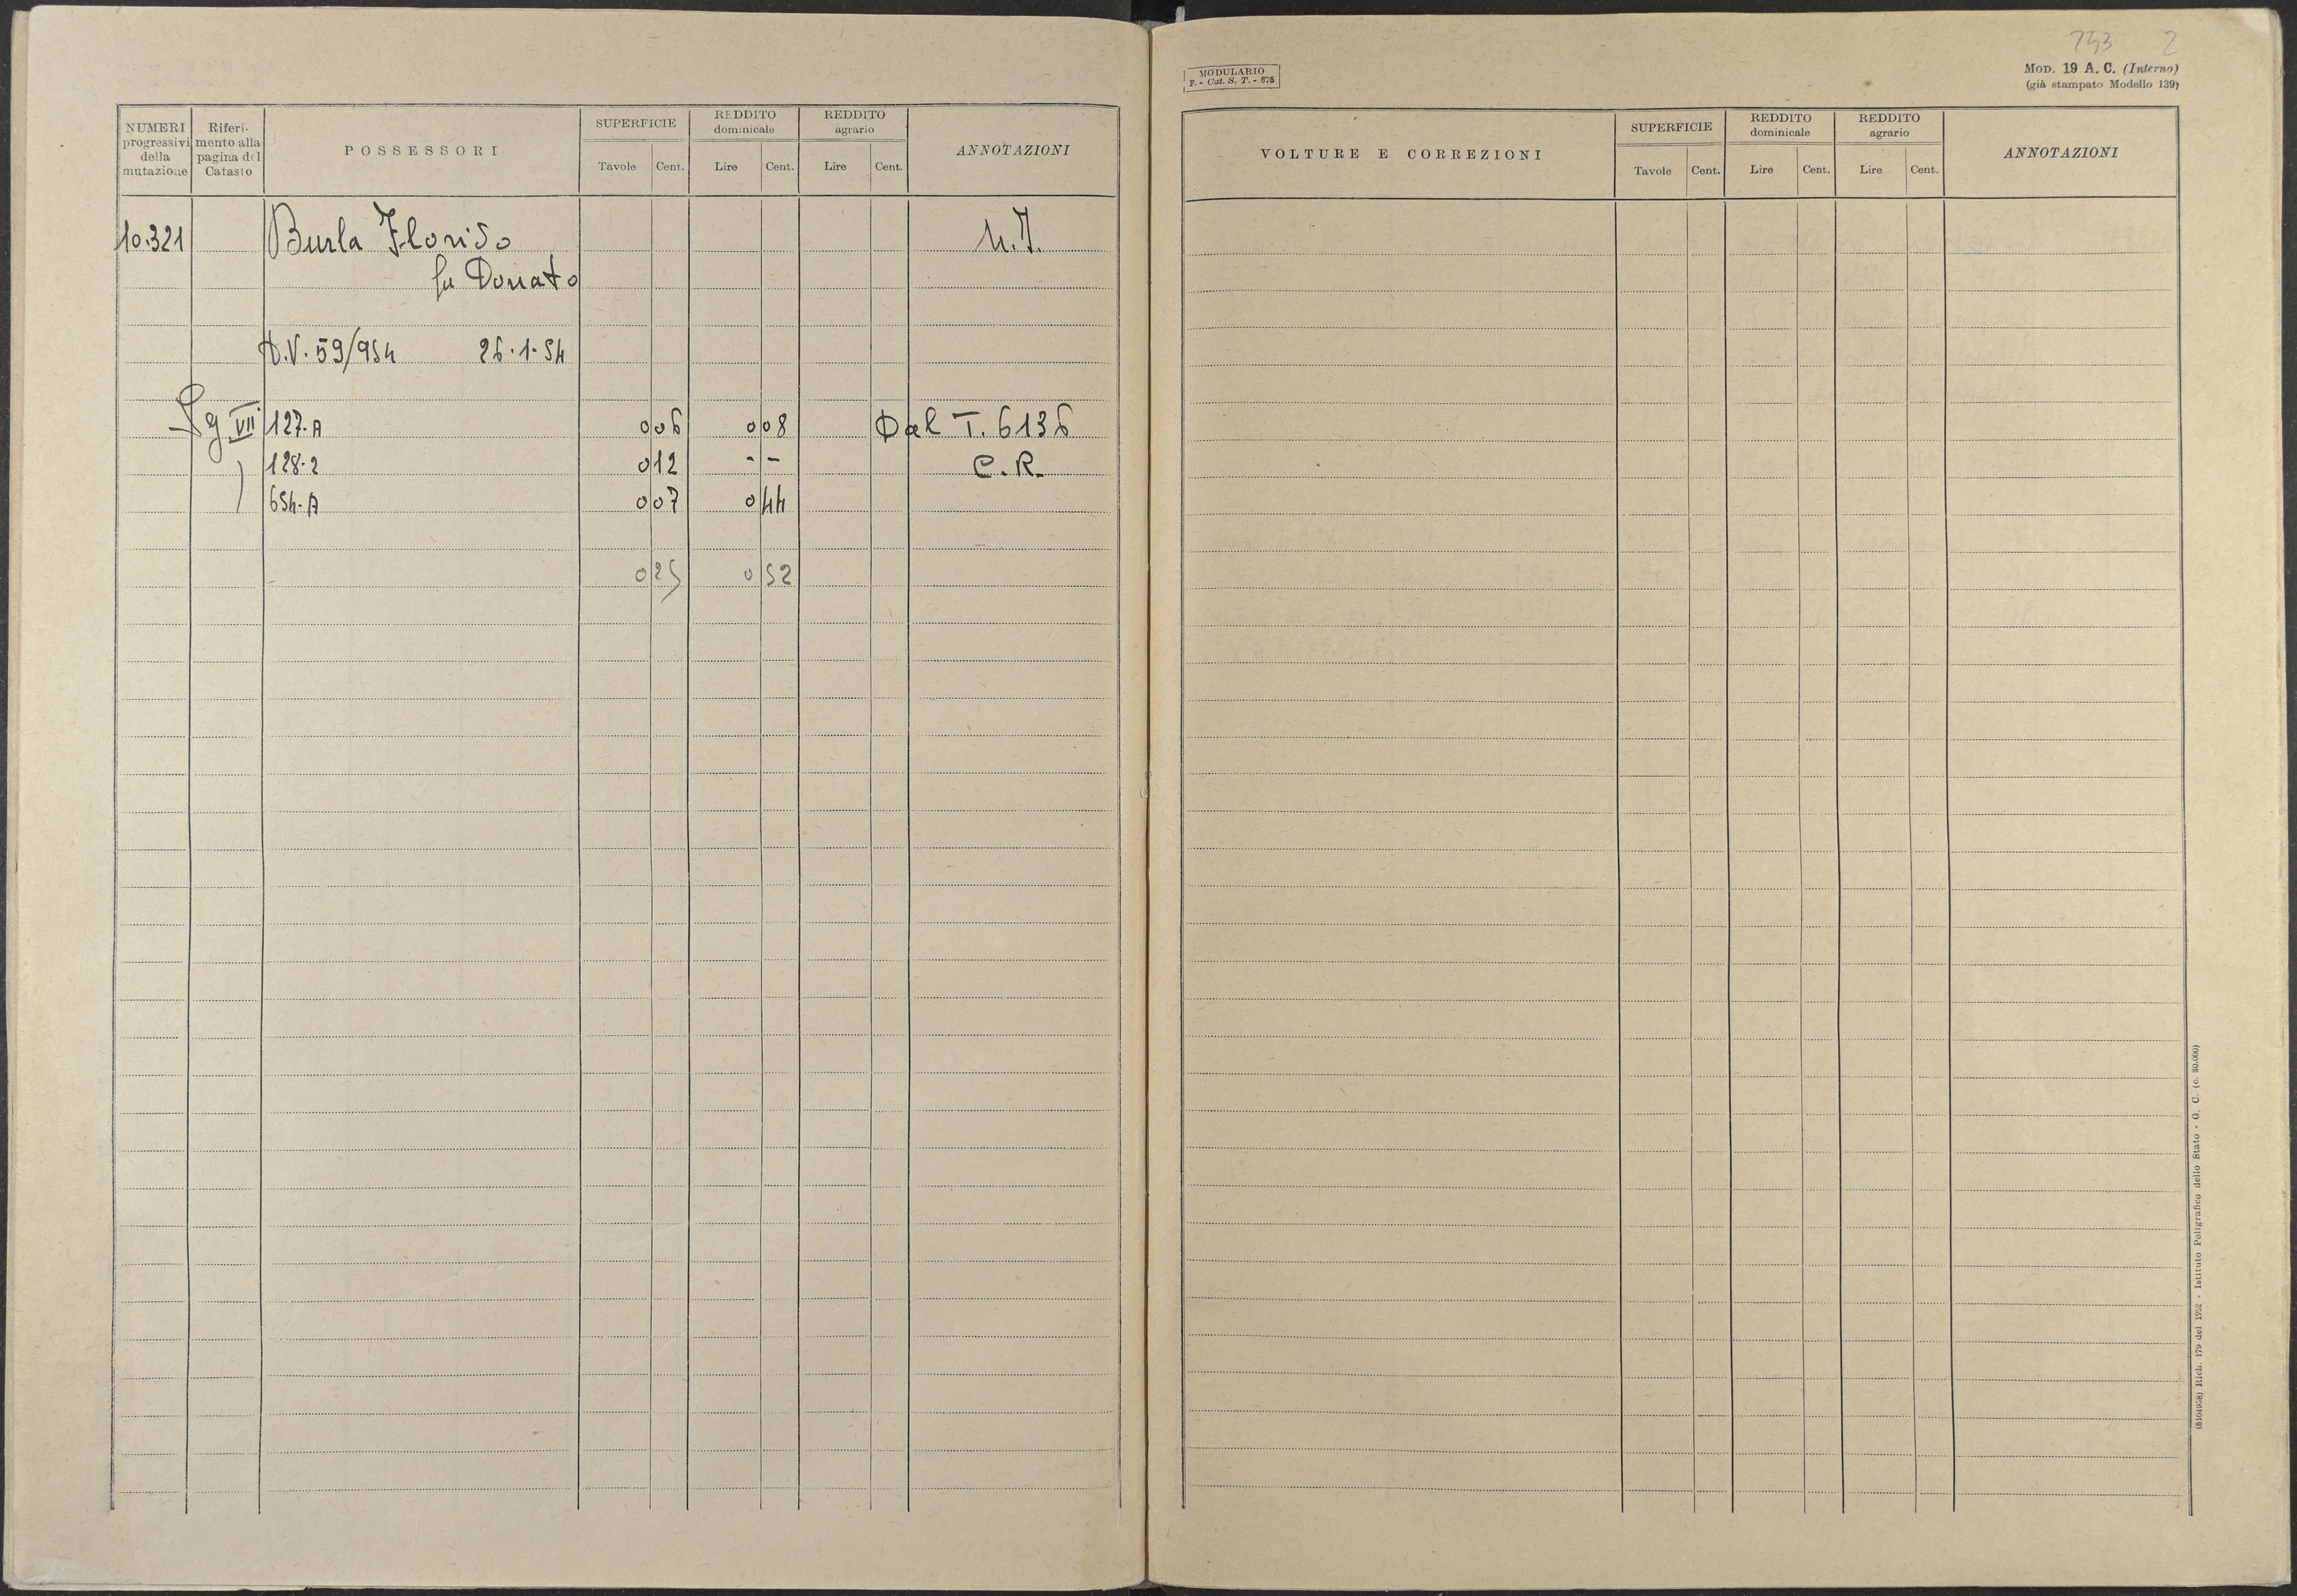 NUMERI progressivi della mutazione | Riferimento alla pagina del Catasto | POSSESSORI | SUPERFICIE Tavole Cent. | REDDITO dominicale Lire Cent. | REDDITO agrario Lire Cent. | ANNOTAZIONI
10.321 Burla Florido
fu Donato
D.V. 59/954 26.1.54
Sg VII 127.A 0 06 0 08 Dal T. 6136
128.2 0 12 - - C.R.
654.A 0 07 0 44
0 25 0 52
MODULARIO
F. - Cat. S. T. - 675
2
MOD. 19 A. C. (Interno)
(già stampato Modello 139)
VOLTURE E CORREZIONI | SUPERFICIE Tavole Cent. | REDDITO dominicale Lire Cent. | REDDITO agrario Lire Cent. | ANNOTAZIONI
Rich. 179 del 1952 - Istituto Poligrafico dello Stato - G. C. (c. 80.000)